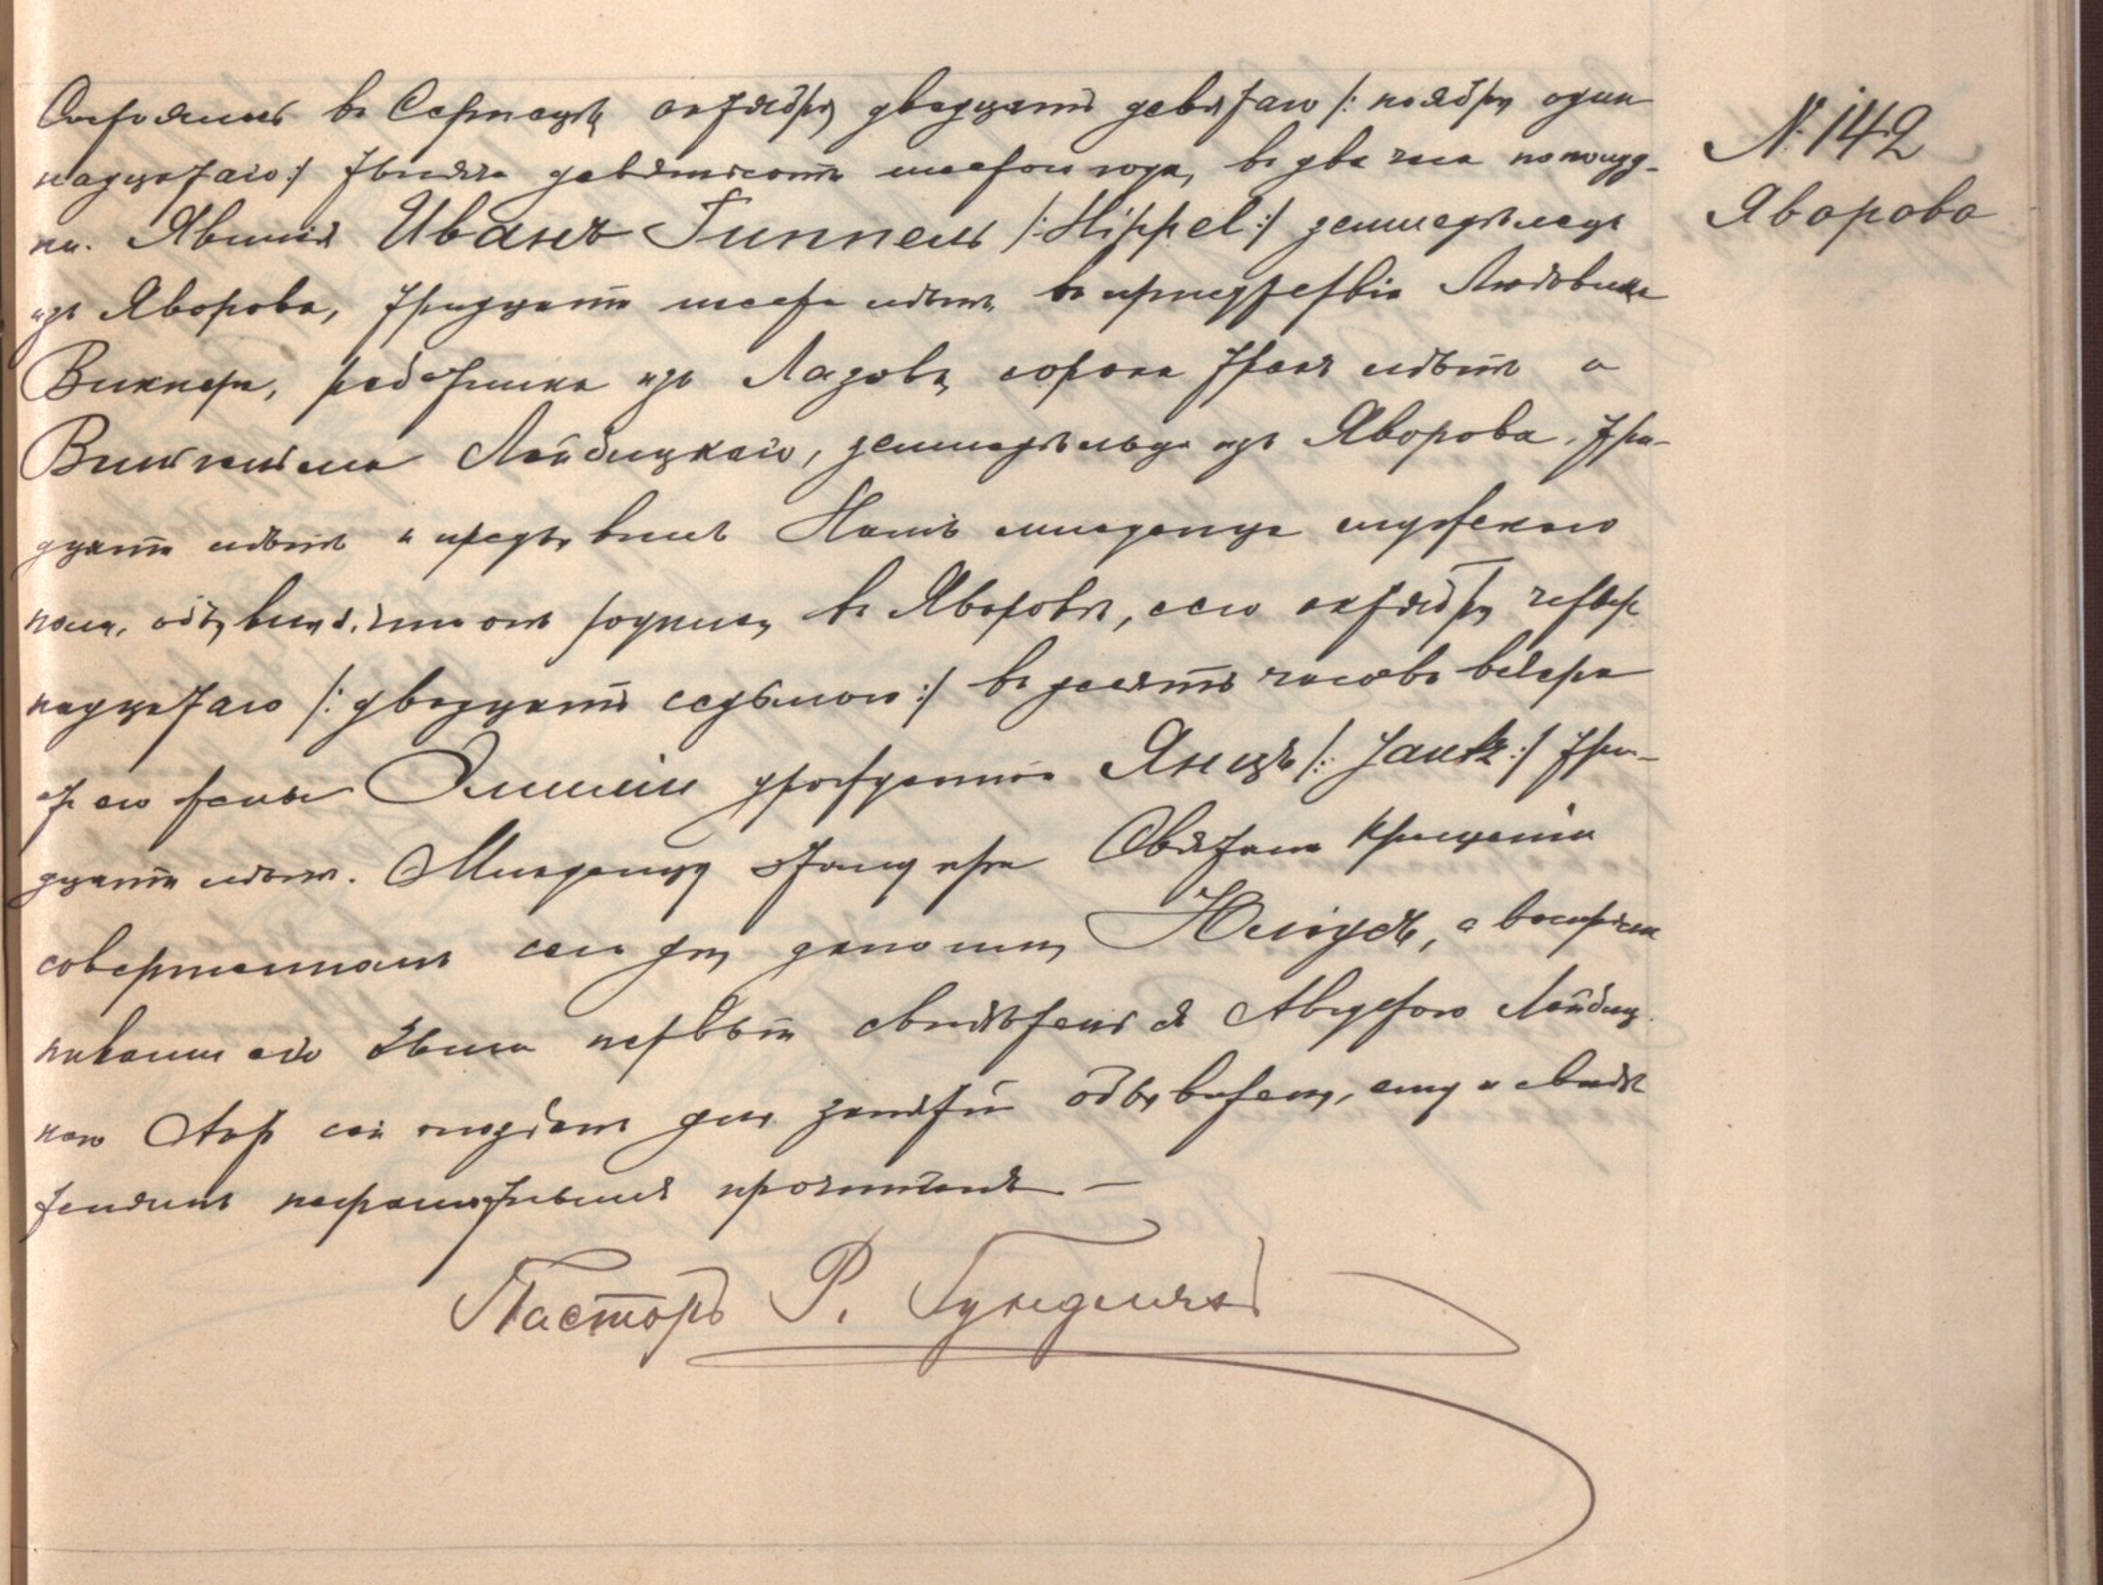 Состоялось въ Серпецѣ октября двадцать девятаго /: ноября один
надцатаго :/ тысяча девятьсотъ шестого года, въ два часа пополуд-
ни. Явился Иванъ Гиппель /: Hippel :/ земледѣлецъ
изъ Яворова, тридцати шести лѣтъ, въ присутствіи Людовика
Викнера, работника изъ Лазовъ, сорока трехъ лѣтъ и
Вильгельма Лейбицкаго, земледѣльца изъ Яворова, три-
дцати лѣтъ и предъявилъ Намъ младенца мужескаго
пола, объявляя, что онъ родился въ Яворовѣ, сего октября четыр
надцатаго /: двадцать седьмого :/ въ десять часовъ вечера
отъ его жены Эмиліи урожденной Янцъ /: Jantz :/ три-
дцати лѣтъ. Младенцу этому при Святомъ Крещеніи
совершенномъ сего дня дано имя Юліусъ, а воспріем
никами его были первый свидѣтель и Августа Лейбиц
кая Актъ сей слѣдомъ для занятій объявителя, ему и свидѣ
телямъ неграмотнымъ прочитанъ —
Пасторъ Р. Гундлахъ
№ 142
Яворово